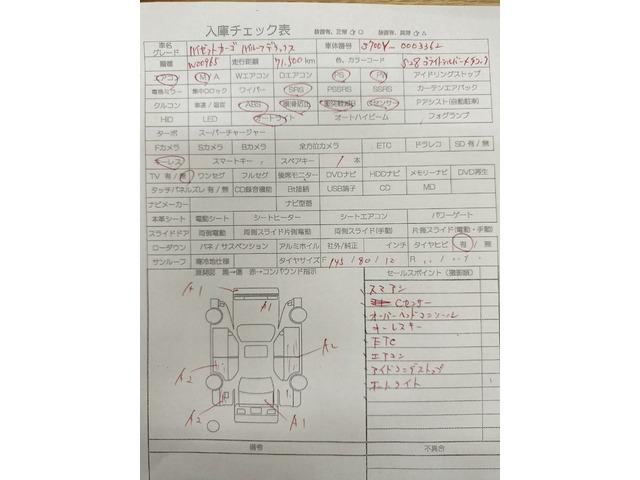 入庫チェック表 装備有、正常 ○ 装備有、異常 △
車名 グレード ハイゼットカーゴ ハイルーフデラックス 車体番号 S700V-0003362
類種 W00965 走行距離 71,500 km 色、カラーコード S28 ブライトシルバーメタリック
エアコン M A Wエアコン Dエアコン PS PW アイドリングストップ
電格ミラー 集中ロック ワイパー SRS PSSRS SSRS カーテンエアバック
クルコン 車速 / 追従 ABS 横滑防止 衝突軽減B Cセンサー Pアシスト(自動駐車)
HID LED オートライト オートハイビーム フォグランプ
ターボ スーパーチャージャー
Fカメラ Sカメラ Bカメラ 全方位カメラ ETC ドラレコ SD 有 / 無
キーレス スマートキー スペアキー 1 本
TV 有 / 無 ワンセグ フルセグ 後席モニター DVDナビ HDDナビ メモリーナビ DVD再生
タッチパネルズレ 有 / 無 CD録音機能 Bt接続 USB端子 CD MD
ナビメーカー ナビ型番
本革シート 電動シート シートヒーター シートエアコン パワーゲート
スライドドア 両側電動 両側スライド片側電動 両側スライド(手動) 片側スライド(電動・手動)
ローダウン バネ / サスペンション アルミホイル 社外/純正 インチ タイヤヒビ 有 / 無
サンルーフ 寒冷地仕様 タイヤサイズ F 145 / 80 / 12 R
展開図 黒→傷 赤→コンパウンド指示 セールスポイント (撮影順)
A1
A1
A2
A2
A2
A1
スマアシ
Cセンサー
オーバーヘッドコンソール
キーレスキー
ETC
エアコン
アイドリングストップ
オートライト
備考 不具合